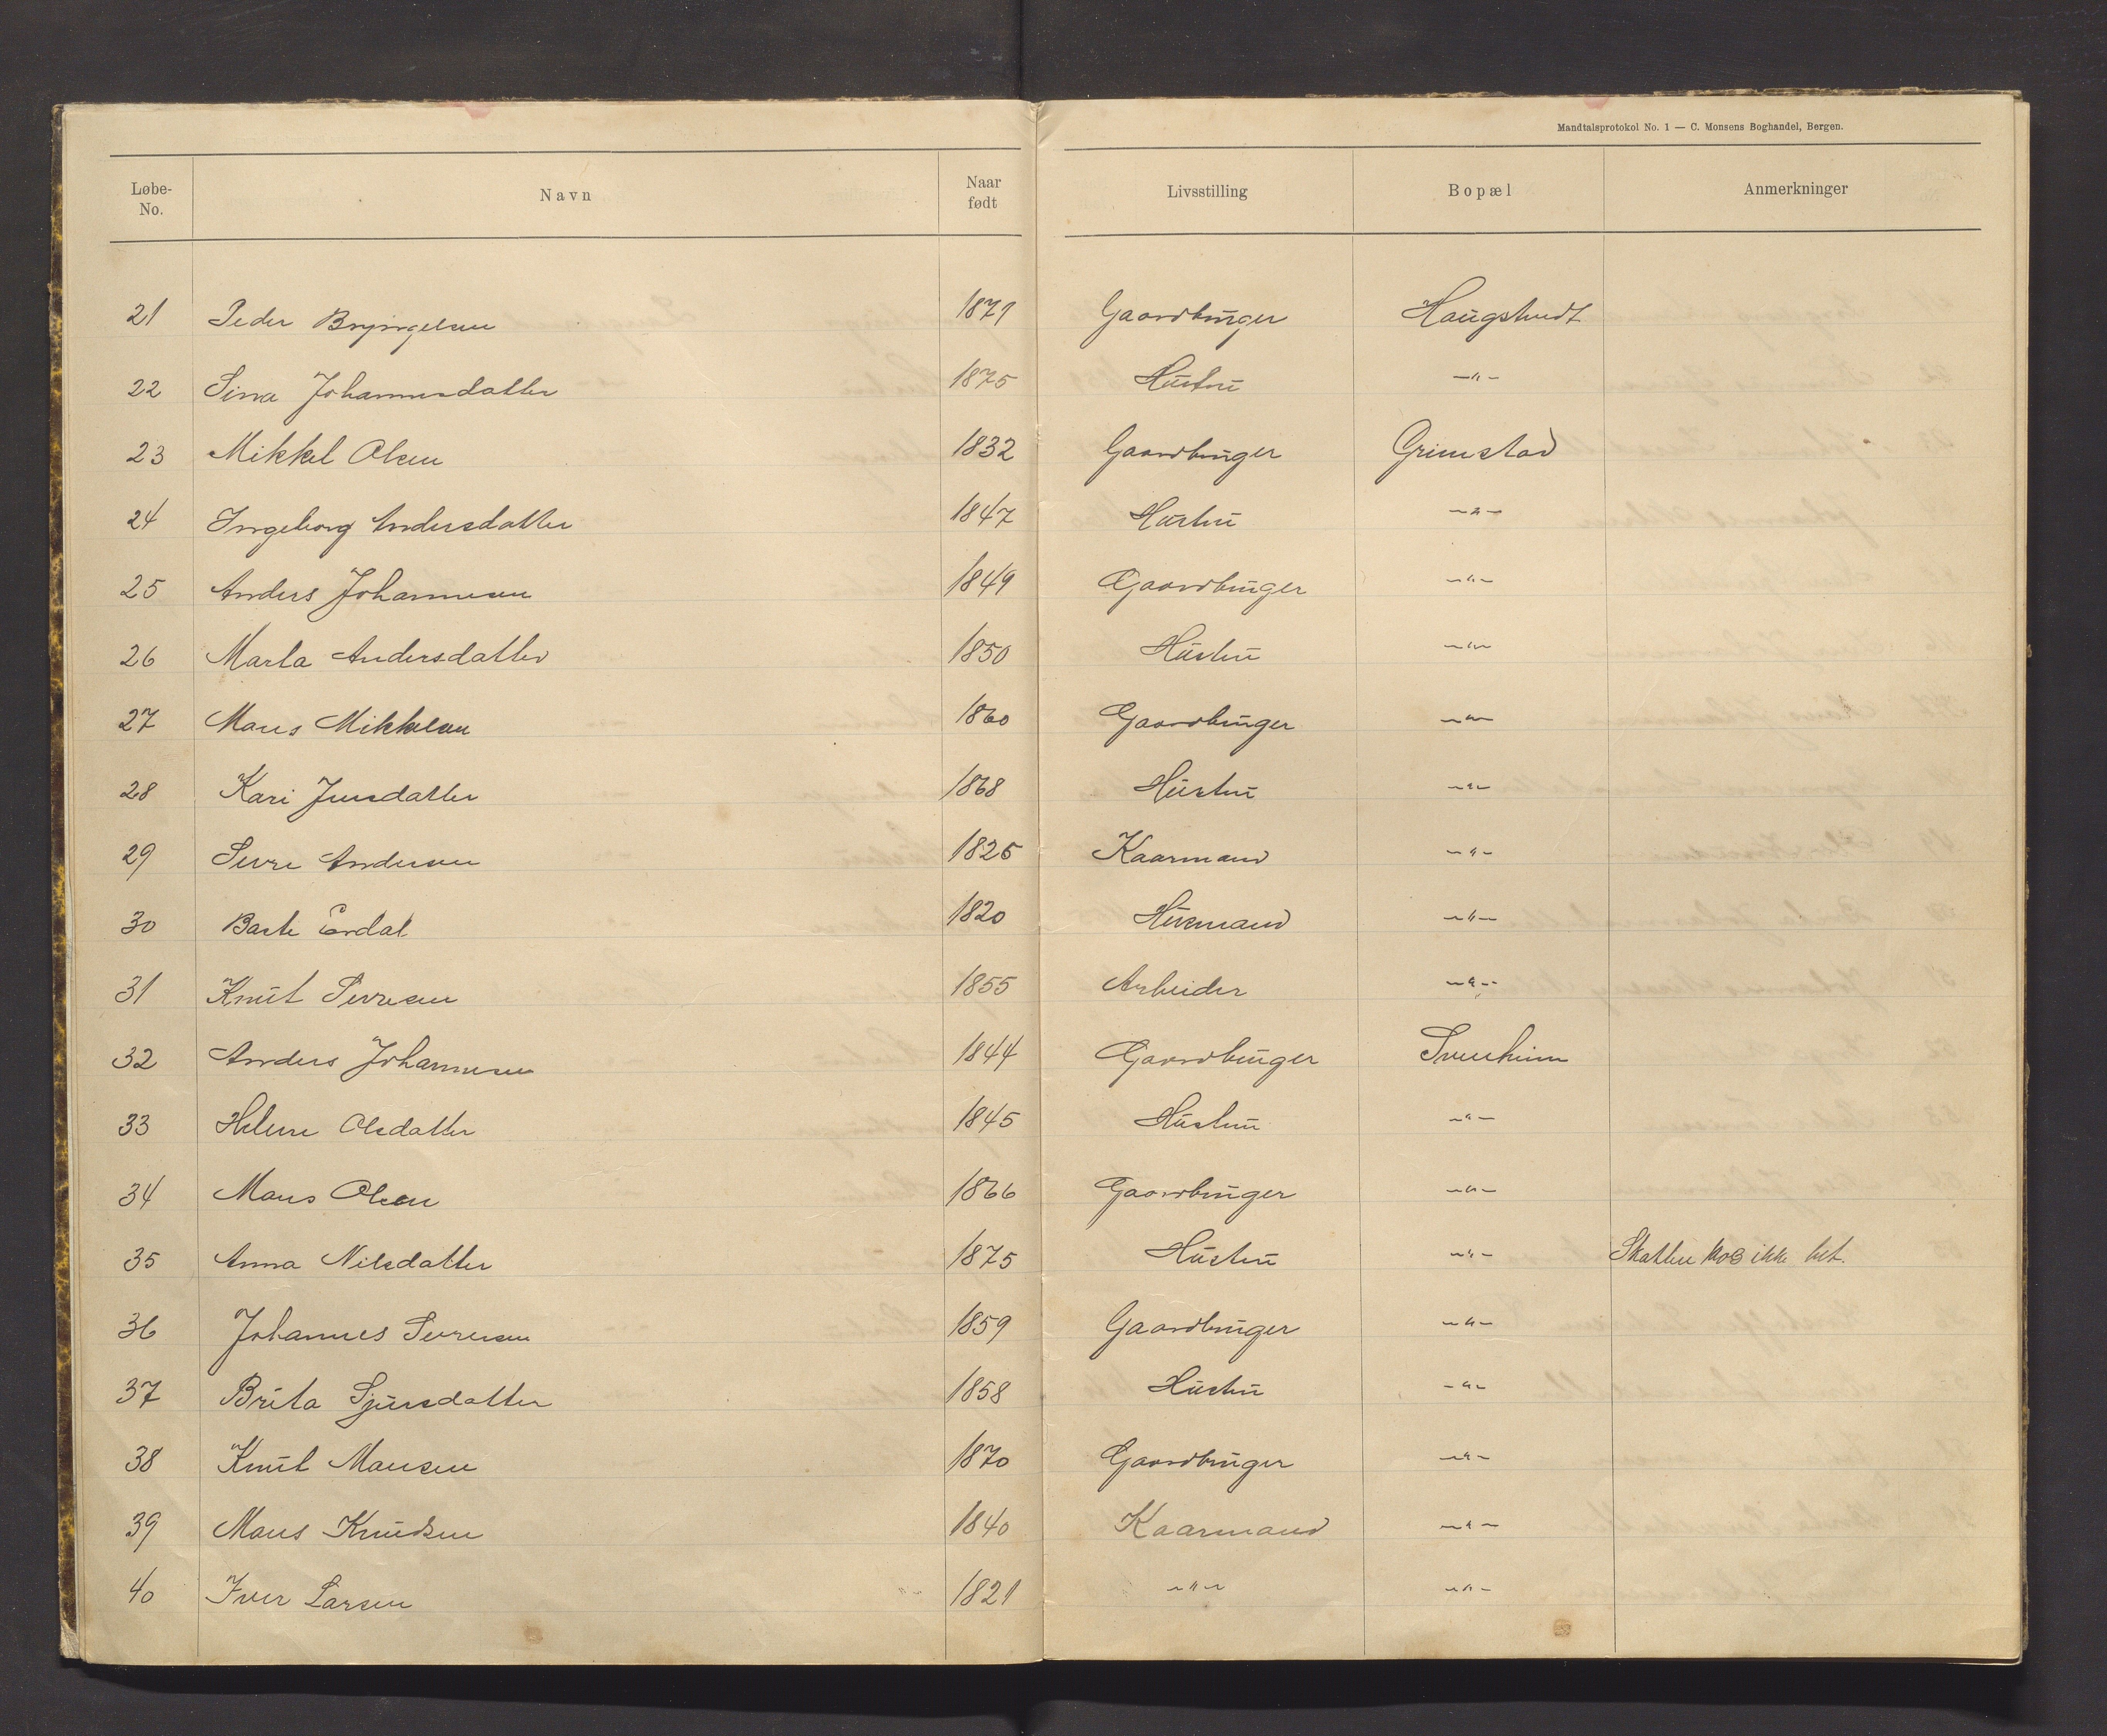 Mandtalsprotokol No. 1 — C. Monsens Boghandel, Bergen.
Løbe-No. Navn Naar født Livsstilling Bopæl Anmerkninger
21 Peder Bryngelsen 1871 Gaardbruger Haugstvedt
22 Sina Johannesdatter 1875 Hustru —"—
23 Mikkel Olsen 1832 Gaardbruger Grimstad
24 Ingeborg Andersdatter 1847 Hustru —"—
25 Anders Johannesen 1849 Gaardbruger —"—
26 Marta Andersdatter 1850 Hustru —"—
27 Mons Mikkelsen 1860 Gaardbruger —"—
28 Kari Jensdatter 1868 Hustru —"—
29 Sevre Andersen 1825 Kaarmand —"—
30 Baste Erdal 1820 Husmand —"—
31 Knut Sevresen 1855 Arbeider —"—
32 Anders Johannesen 1844 Gaardbruger Svenheim
33 Helene Olsdatter 1845 Hustru —"—
34 Mons Olsen 1866 Gaardbruger —"—
35 Anna Nilsdatter 1875 Hustru —"— Skatten ikke bet.
36 Johannes Sevresen 1859 Gaardbruger —"—
37 Brita Sjursdatter 1858 Hustru —"—
38 Knut Monsen 1870 Gaardbruger —"—
39 Mons Knudsen 1840 Kaarmand —"—
40 Iver Larsen 1821 —"— —"—